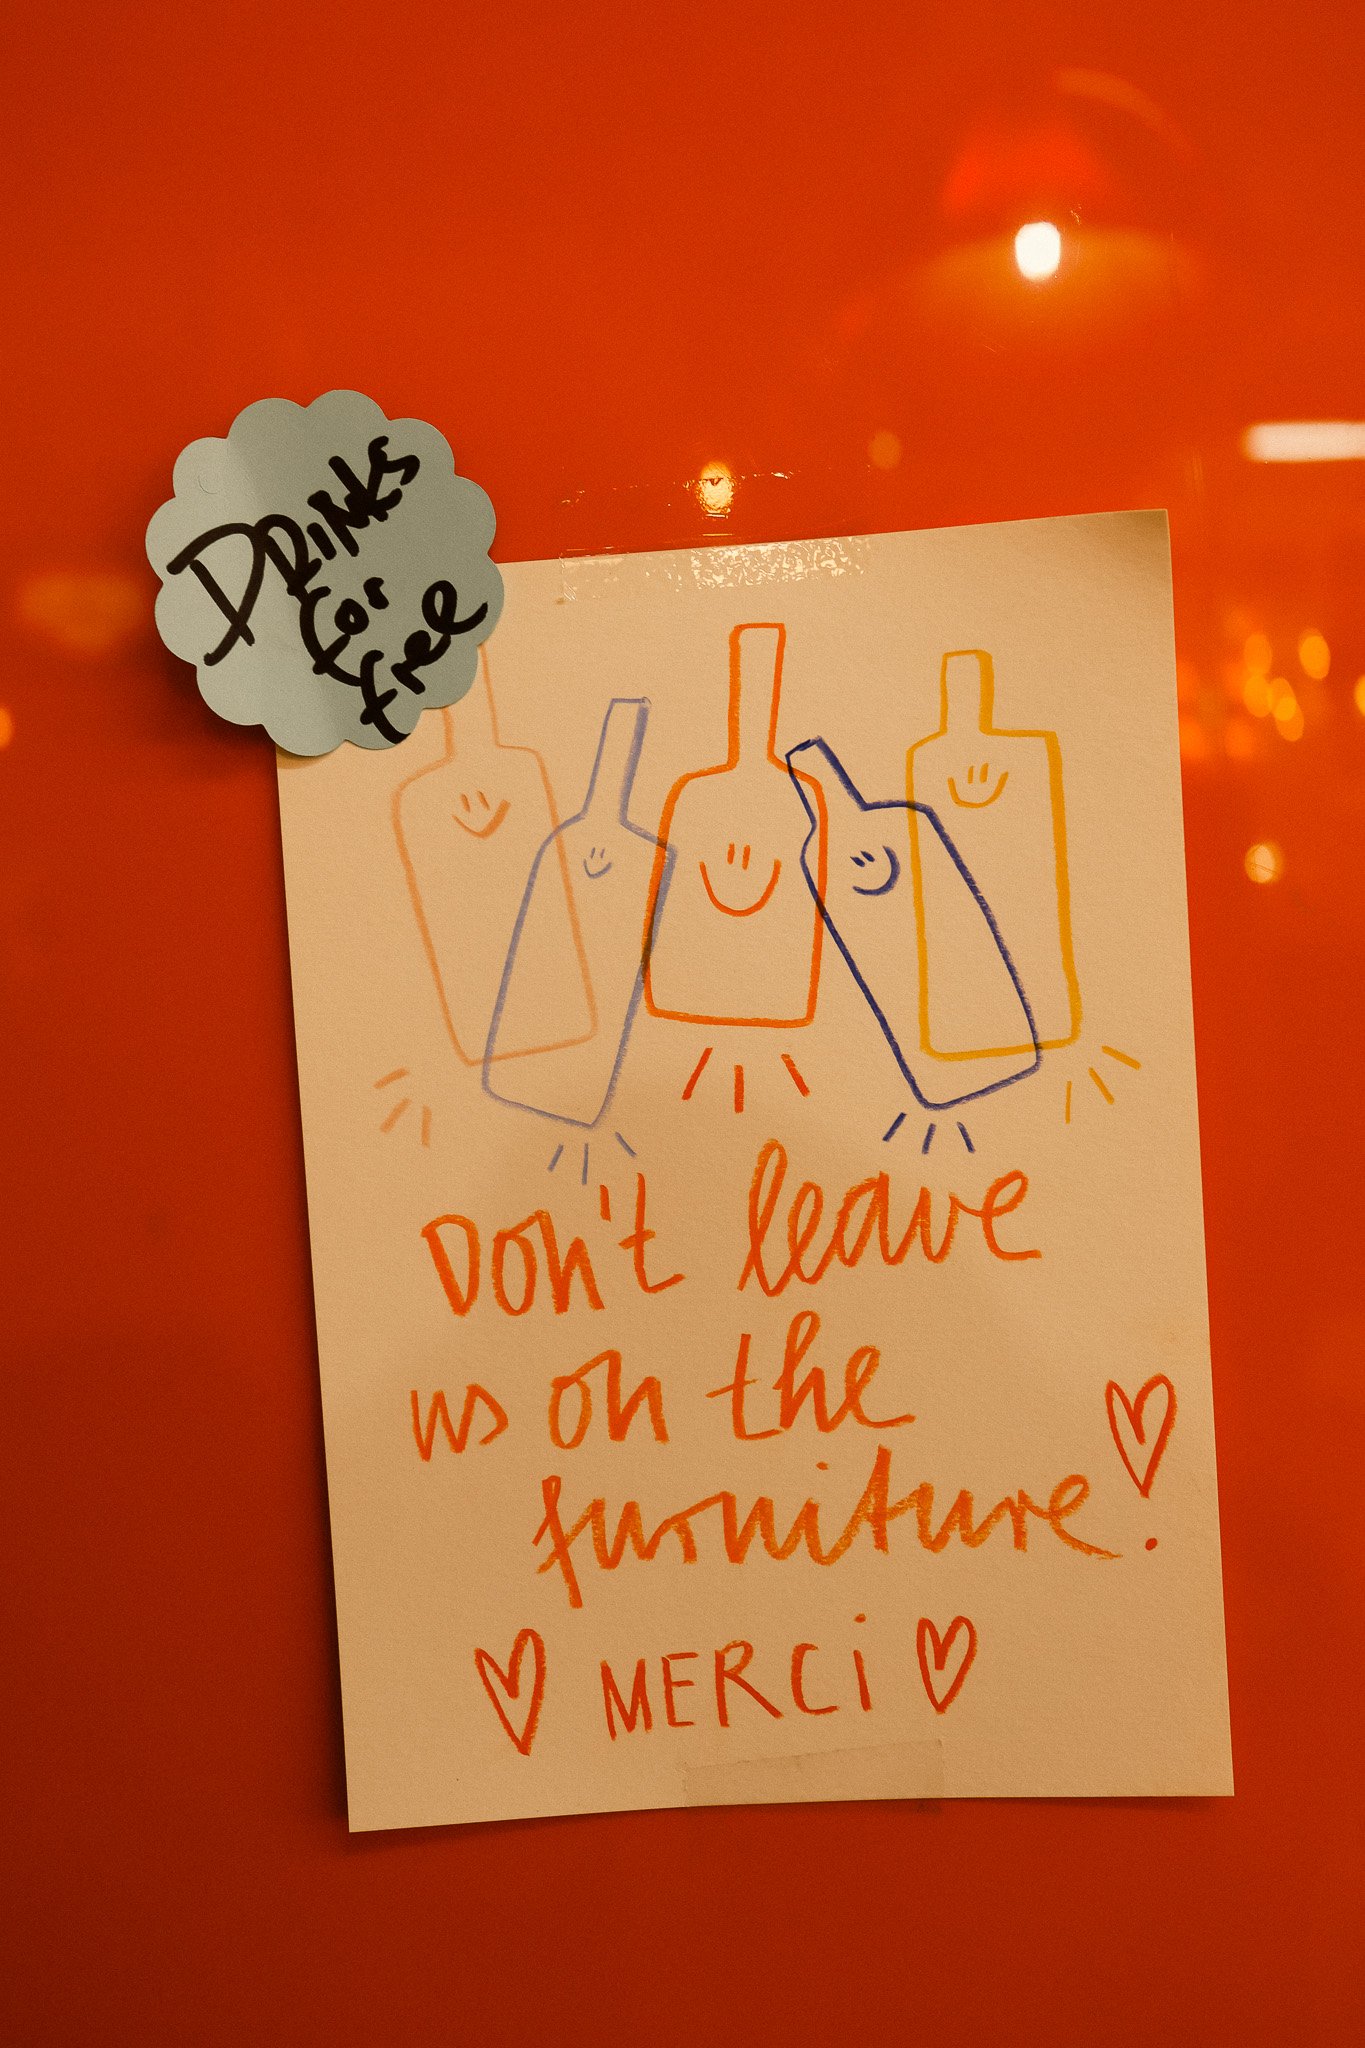 DRINKS
for
free
Don't leave
us on the
furniture!
MERCi